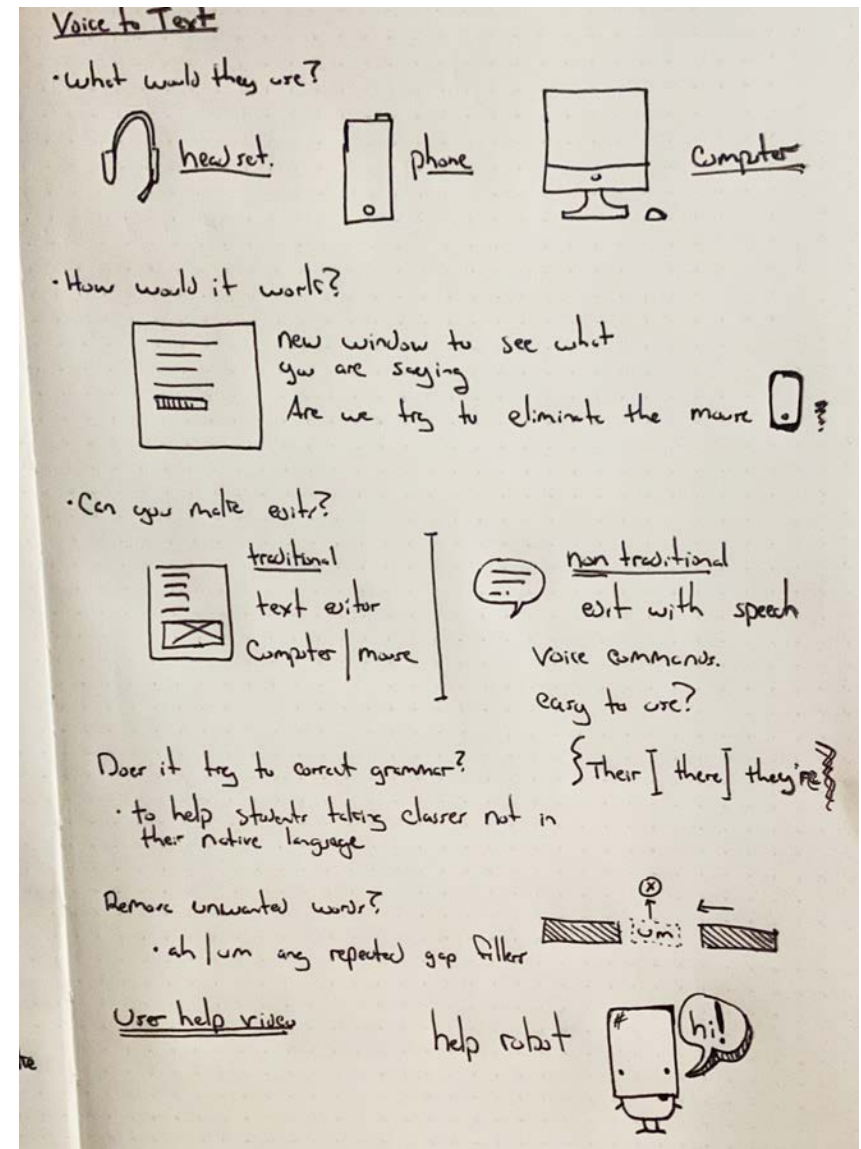 Voice to Text
· what would they use?
headset.
phone
Computer
· How would it work?
new window to see what
you are saying
Are we try to eliminate the mouse
· Can you make edits?
traditional
text editor
Computer | mouse
non traditional
edit with speech
Voice commands.
easy to use?
Does it try to correct grammar?
{Their] there] they're}
· to help students taking classes not in
their native language
Remove unwanted words?
x
um
· ah | um any repeated gap fillers
User help video
help robot
#
hi!